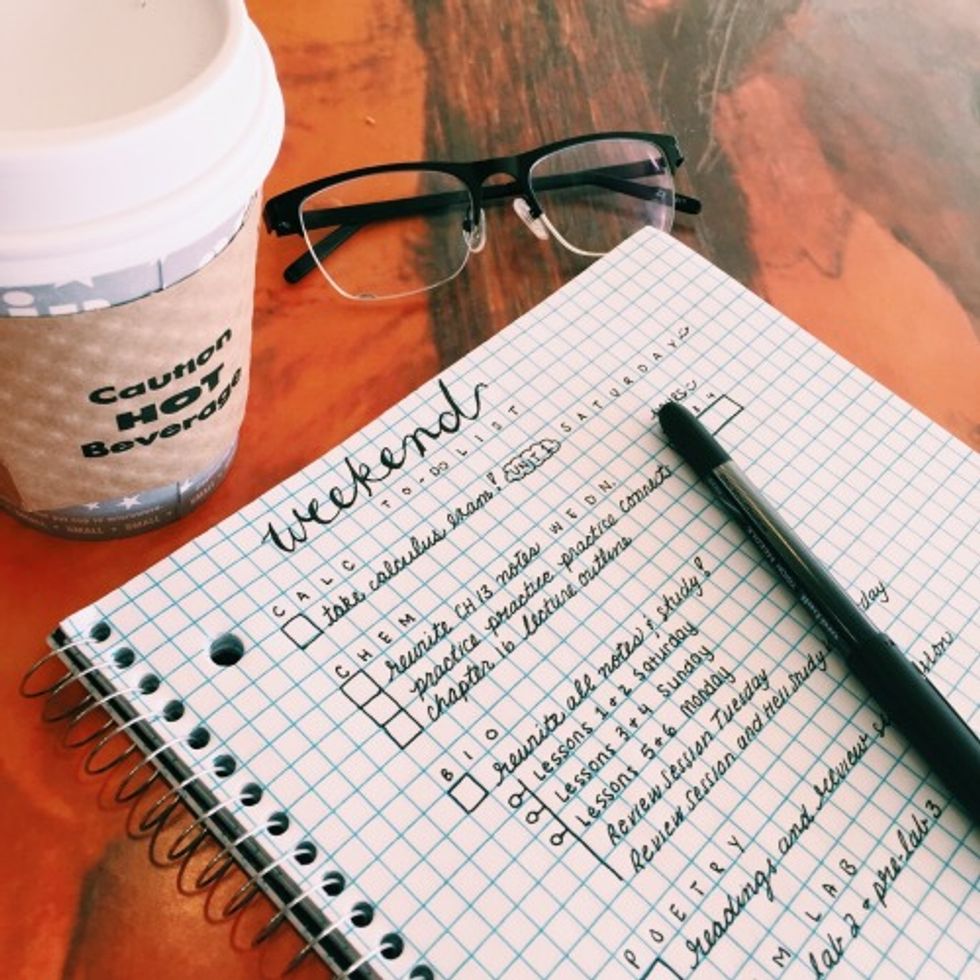 Caution
HOT
Beverage
SMALL • SMALL • SMALL
weekend
TO-DO LIST
CALC
take calculus exam! UNIT 1 SATURDAY
CHEM
rewrite CH 13 notes WEDN.
practice practice practice connects
chapter 16 lecture outline
BIO
rewrite all notes & study!
Lessons 1 + 2 Saturday
Lessons 3 + 4 Sunday
Lessons 5 + 6 Monday
Review session Tuesday
Review session and
POETRY
readings and review
LAB
lab 2 + pre-lab 3